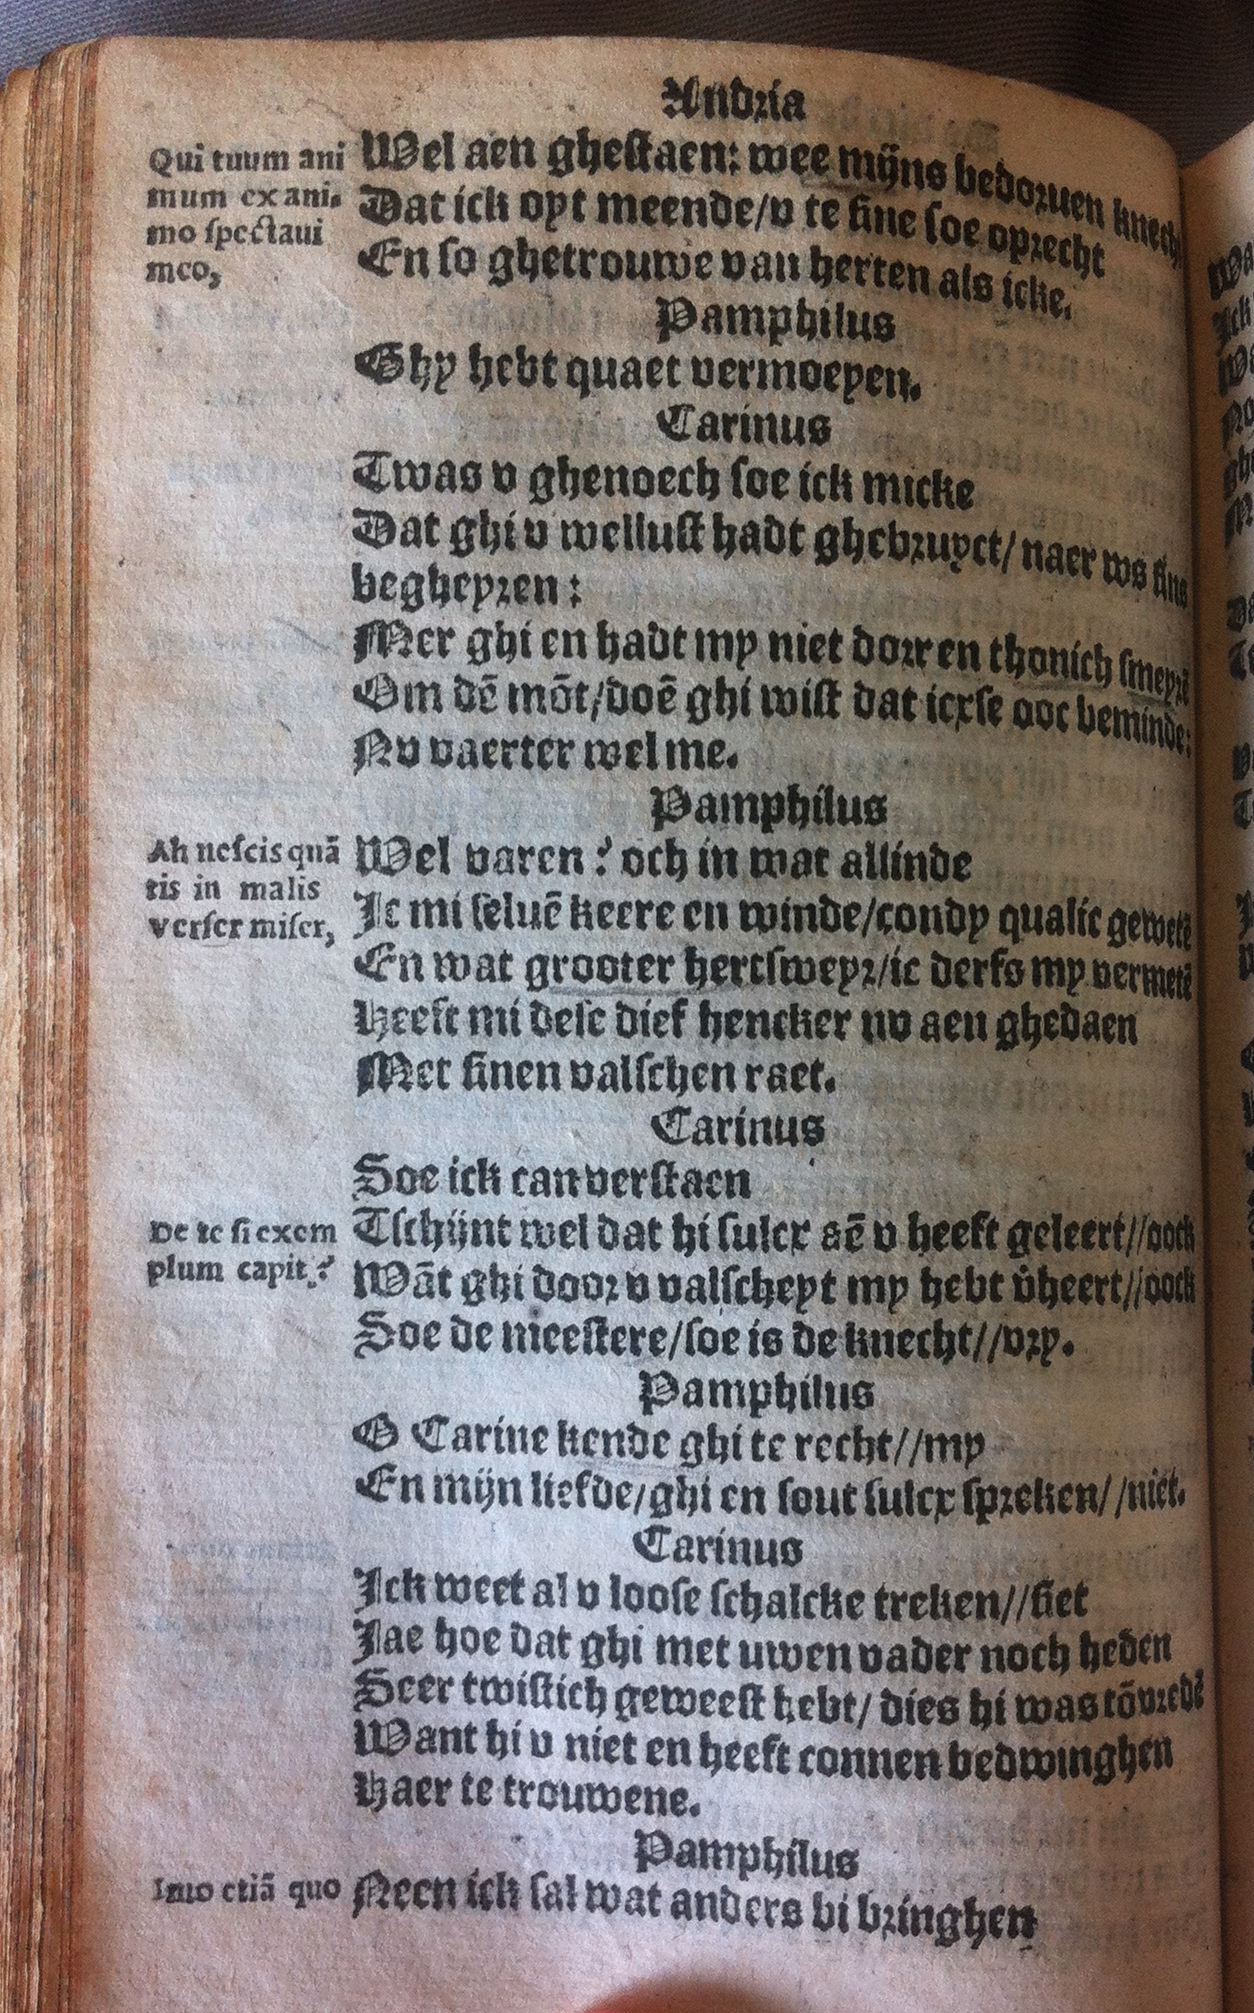 Andria
Qui tuum ani
mum ex ani-
mo spectaui
meo,
Wel aen ghestaen: wee mijns bedoruen knecht
Dat ick oyt meende/v te sine soe oprecht
En so ghetrouwe van herten als icke.
Pamphilus
Ghy hebt quaet vermoeyen.
Carinus
Twas v ghenoech soe ick micke
Dat ghi v wellust hadt ghebruyct/ naer ws sins
begheyren:
Mer ghi en hadt my niet dorren thonich smeyrē
Om dē mōt/doē ghi wist dat icxse ooc beminde:
Nv vaerter wel me.
Pamphilus
Ah nescis quā
tis in malis
verser miser,
Wel varen? och in wat allinde
Ic mi seluē keere en winde/condy qualic gewetē
En wat grooter hertsweyr/ic derfs my vermetē
Heeft mi dese dief hencker nv aen ghedaen
Met sinen valschen raet.
Carinus
Soe ick can verstaen
De te si exem
plum capit?
Tschijnt wel dat hi sulcx aē v heeft geleert//oock
Wāt ghi door v valscheyt my hebt v̊heert//oock
Soe de meestere/soe is de knecht//vry.
Pamphilus
O Carine kende ghi te recht//my
En mijn liefde/ghi en sout sulcx spreken//niet.
Carinus
Ick weet al v loose schalcke treken//siet
Jae hoe dat ghi met uwen vader noch heden
Seer twistich geweest hebt/ dies hi was tōvredē
Want hi v niet en heeft connen bedwinghen
Haer te trouwene.
Pamphilus
Imo etiā quo
Neen ick sal wat anders bi bringhen